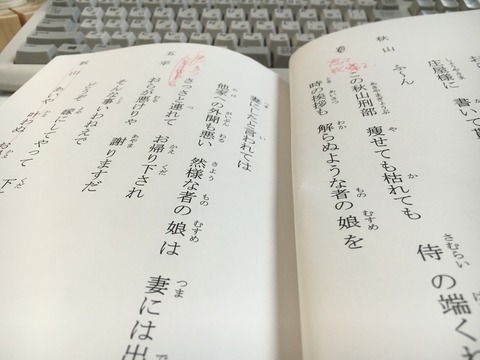 庄屋様に 書いて
秋山
ふーん
この秋山刑部 痩せても枯れても 侍の端くれ
時の挨拶も 解らぬような者の娘を
妻にしたと言われては
他家への外聞も悪い 然様な者の娘は 妻には出
さっさと連れて お帰り下され
五平
おらが悪けりゃ 謝りますだ
そんな事いわねえで
どうぞ 嫁にしてやって 下
秋山